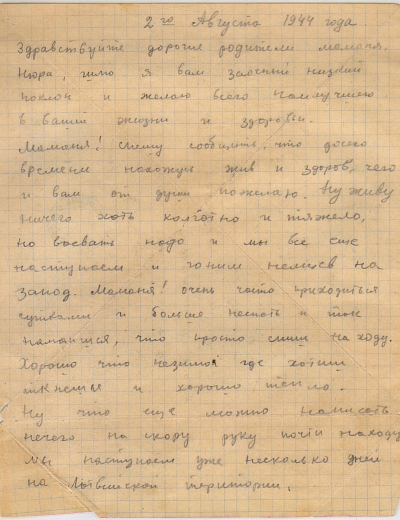 2го Августа 1944 года.
Здравствуйте дорогие родители маманя.
Нюра, шлю я вам заочный низкий
поклон и желаю всего наилучшего
в вашей жизни и здоровьи.
Маманя! Спешу сообщить, что до сего
времени нахожусь жив и здоров, чего
и вам от души пожелаю. Ну живу
ничего хоть колготно и тяжело,
но воевать надо и мы все еще
наступаем и гоним немцев на
запад. Маманя! очень часто приходиться
сутками и больше неспать и так
намаишся, что просто спиш на ходу.
Хорошо что незима где хотиш
ткнешся и хорошо тепло.
Ну что еще можно написать
нечего на скору руку почти находу
мы наступаем уже несколько дней
на Латвийской територии.